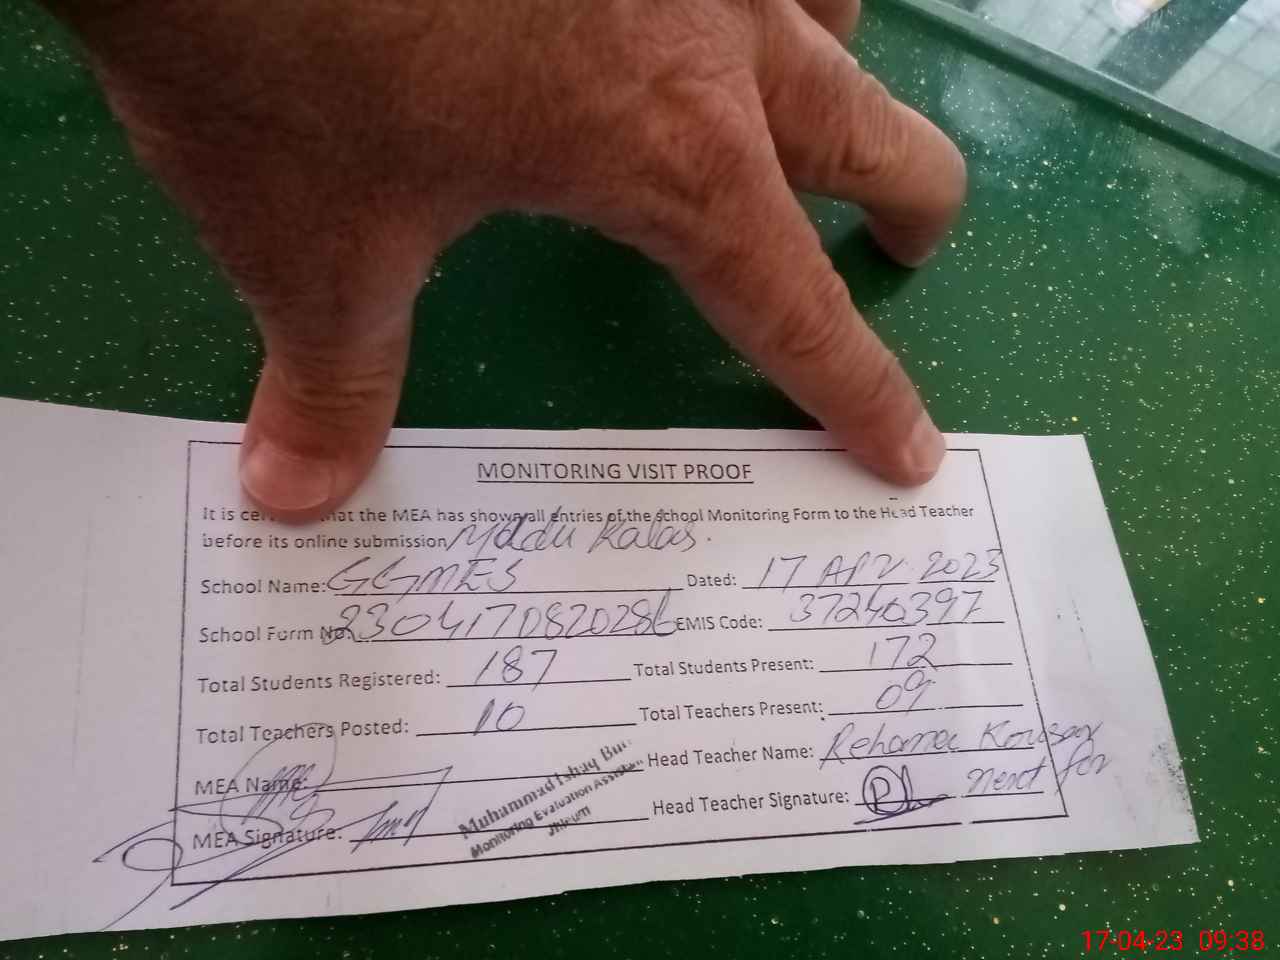 MONITORING VISIT PROOF
It is that the MEA has shown all entries of the School Monitoring Form to the Head Teacher
before its online submission
School Name: GGMES Dated: 17 APR 2023
School Form No: EMIS Code: 37240397
Total Students Registered: 187 Total Students Present: 172
Total Teachers Posted: 10 Total Teachers Present: 09
MEA Name: Head Teacher Name:
MEA Signature: Head Teacher Signature:
Muhammad
Monitoring Evaluation
17-04-23 09:38